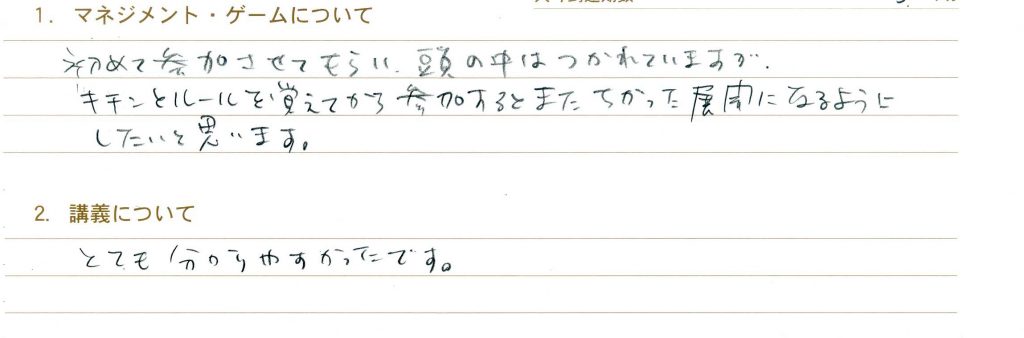 1. マネジメント・ゲームについて
初めて参加させてもらい、頭の中はつかれていますが、
キチンとルールを覚えてから参加するとまたちがった展開になるように
したいと思います。
2. 講義について
とても分かりやすかったです。